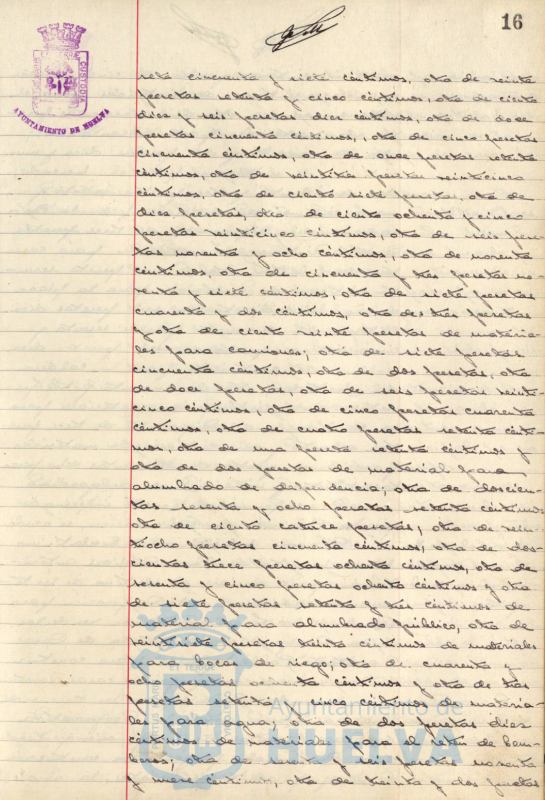 16
AYUNTAMIENTO DE HUELVA
seta cincuenta y siete céntimos, otra de veinte
pesetas setenta y cinco céntimos, otra de ciento
diez y seis pesetas diez céntimos, otra de doce
pesetas cincuenta céntimos, otra de cinco pesetas
cincuenta céntimos, otra de once pesetas setenta
céntimos, otra de veintitrés pesetas veinticinco
céntimos, otra de ciento siete pesetas, otra de
diez pesetas, otra de ciento ochenta y cinco
pesetas veinticinco céntimos, otra de seis pese-
tas noventa y ocho céntimos, otra de noventa
céntimos, otra de cincuenta y tres pesetas no-
venta y siete céntimos, otra de siete pesetas
cuarenta y dos céntimos, otra de tres pesetas
y otra de ciento veinte pesetas de materia-
les para camiones; otra de siete pesetas
cincuenta céntimos, otra de dos pesetas, otra
de doce pesetas, otra de seis pesetas veinti-
cinco céntimos, otra de cinco pesetas cuarenta
céntimos, otra de cuatro pesetas setenta cénti-
mos, otra de una peseta setenta céntimos y
otra de dos pesetas de material para
alumbrado de dependencia; otra de doscien-
tas sesenta y ocho pesetas setenta céntimos
otra de ciento catorce pesetas, otra de vein-
tiocho pesetas cincuenta céntimos, otra de dos-
cientas trece pesetas ochenta céntimos, otra de
sesenta y cinco pesetas ochenta céntimos y otra
de siete pesetas setenta y tres céntimos de
material para alumbrado público, otra de
veintisiete pesetas treinta céntimos de materiales
para bocas de riego; otra de cuarenta y
ocho pesetas céntimos y otra de tres
pesetas setenta y cinco céntimos de materia-
les para agua; otra de dos pesetas diez
céntimos de materiales para el retén de bom-
beros; otra de y seis pesetas noventa
y nueve céntimos, otra de treinta y dos pesetas
Ayuntamiento de
HUELVA